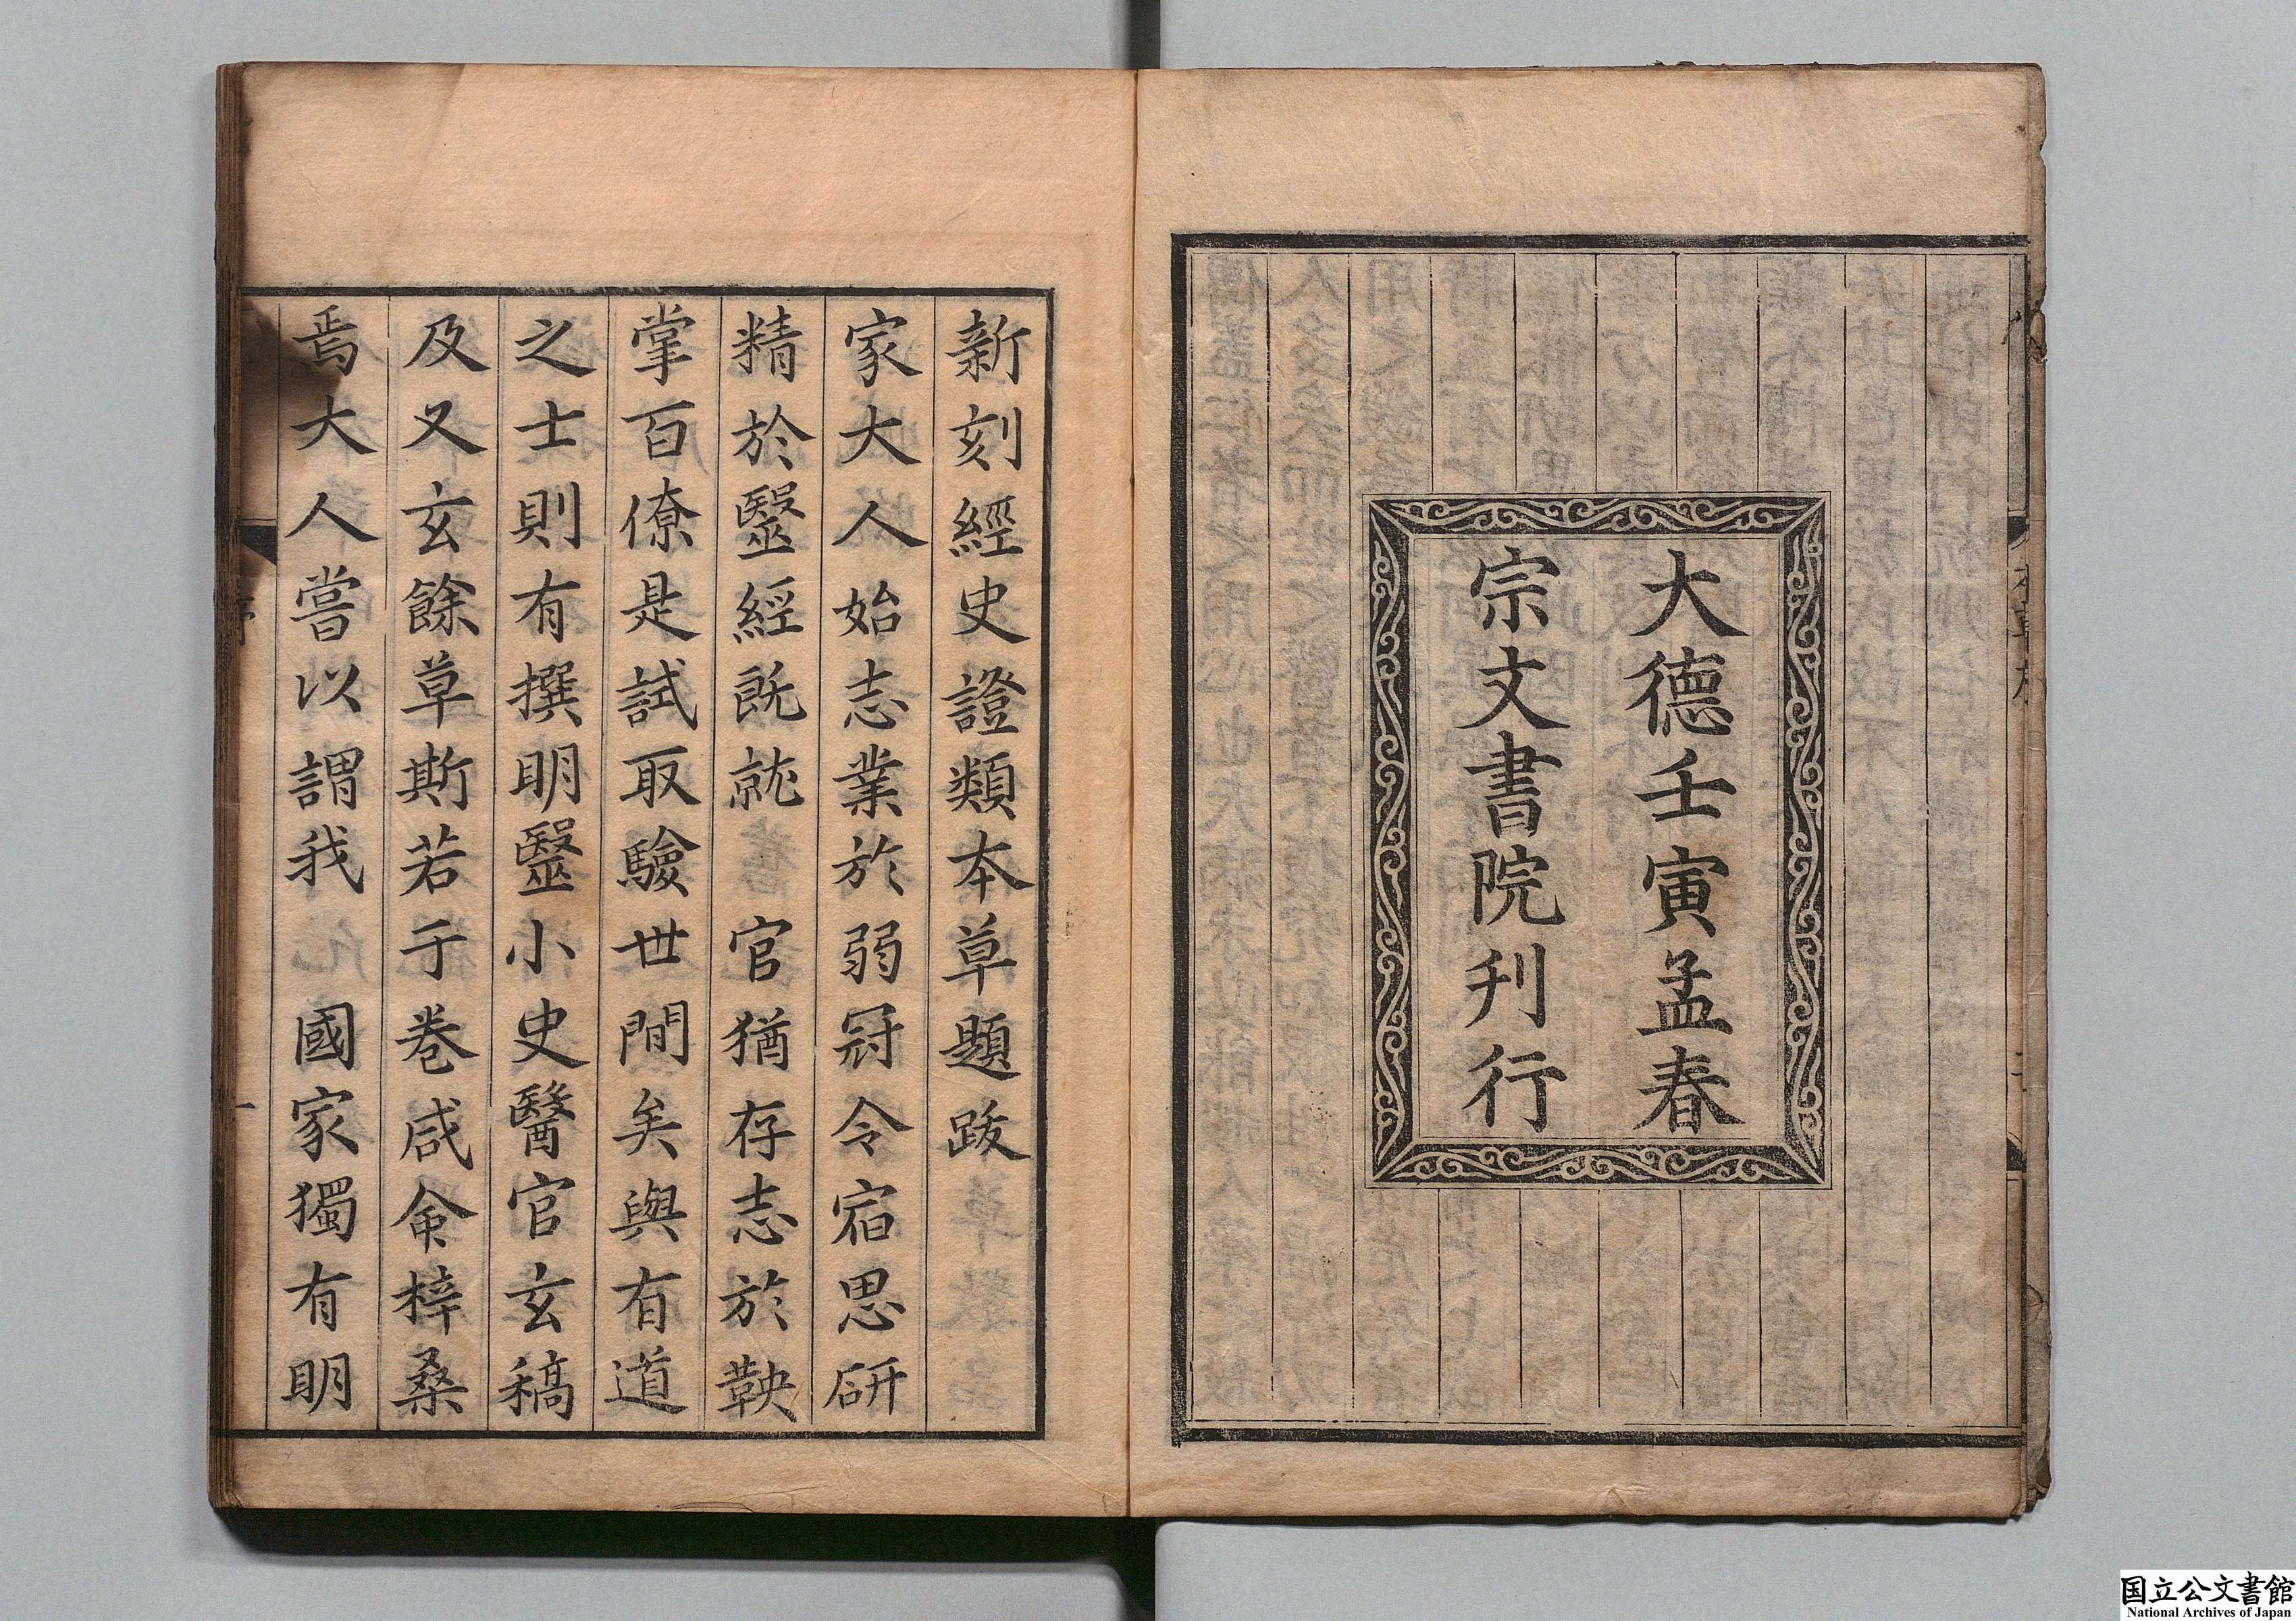 大德壬寅孟春
宗文書院刋行
新刻經史證類本草題跋
家大人始志業於弱冠令宿思硏
精於毉經旣就　官猶存志於鞅
掌百僚是試取驗世間矣與有道
之士則有撰明毉小史醫官玄稿
及又玄餘草斯若干卷咸僉梓桑
焉大人嘗以謂我　國家獨有明
序
一
国立公文書館
National Archives of Japan